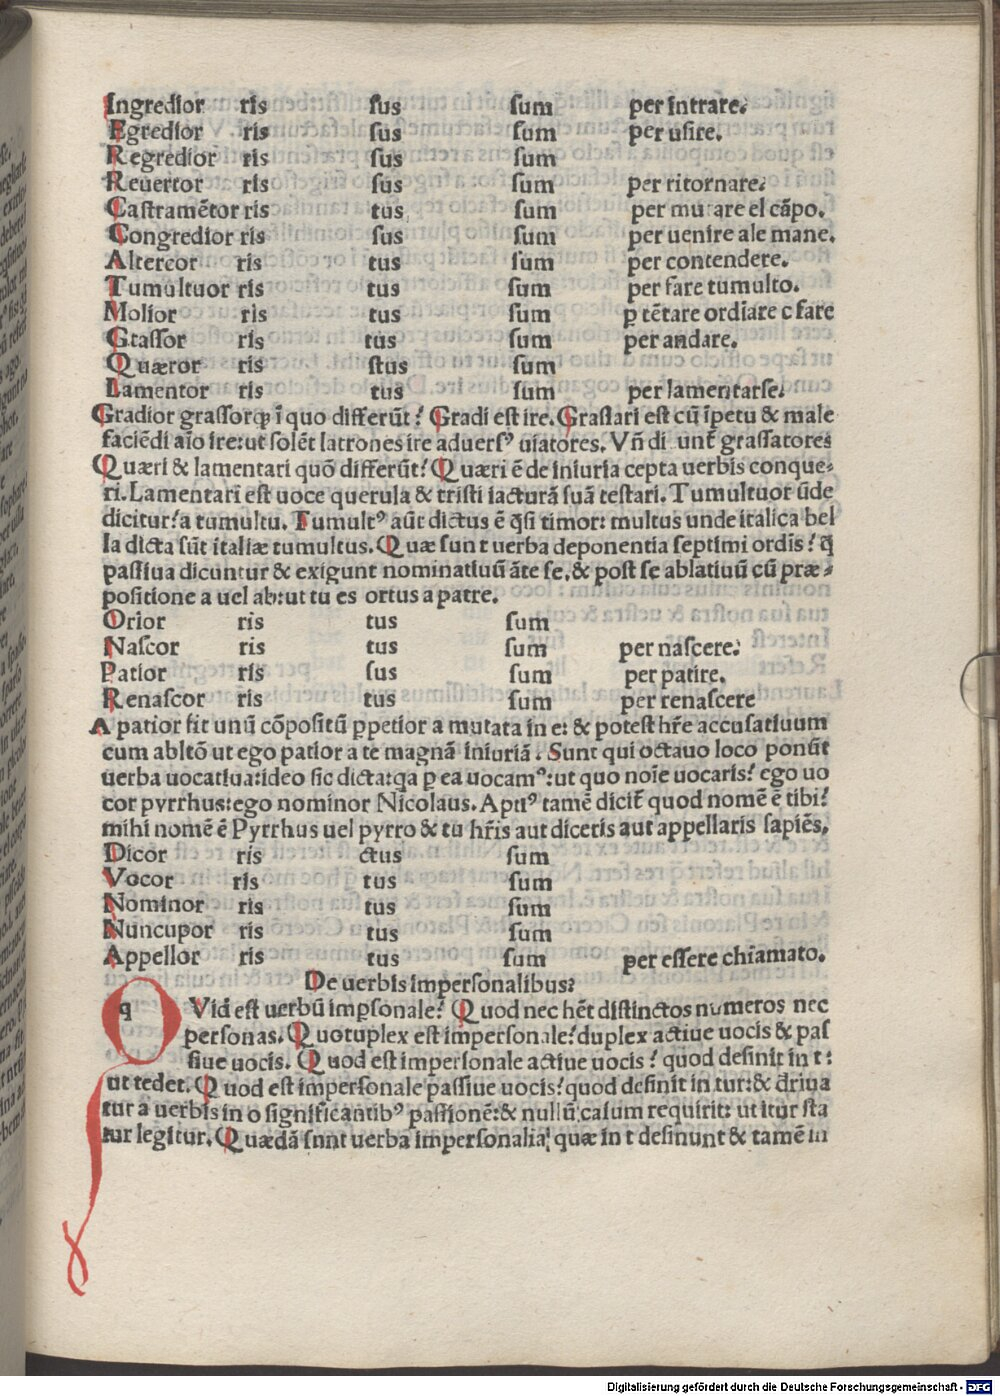 Ingredior ris sus sum per intrare.
Egredior ris sus sum per usire.
Regredior ris sus sum
Reuertor ris sus sum per ritornare.
Castramētor ris tus sum per mutare el cāpo.
Congredior ris sus sum per uenire ale mane.
Altercor ris tus sum per contendere.
Tumultuor ris tus sum per fare tumulto.
Molior ris tus sum ꝑ tētare ordiare c fare
Grassor ris tus sum per andare.
Quæror ris stus sum
Lamentor ris tus sum per lamentarse.
Gradior grassorqꝫ ī quo differūt? Gradi est ire. Grassari est cū īpetu & male
faciēdi aīo ire: ut solēt latrones ire aduersꝰ uiatores. Vn̄ di unt̄ grassatores
Quæri & lamentari quō differūt? Quæri ē de iniuria cepta uerbis conque-
ri. Lamentari est uoce querula & tristi iacturā suā testari. Tumultuor ūde
dicitur? a tumultu. Tumultꝰ aūt dictus ē q̄si timor: multus unde italica bel
la dicta sūt italiæ tumultus. Quæ sunt uerba deponentia septimi ordīs? q̄
passiua dicuntur & exigunt nominatiuū āte se, & post se ablatiuū cū præ-
positione a uel ab: ut tu es ortus a patre.
Orior ris tus sum
Nascor ris tus sum per nascere.
Patior ris sus sum per patire.
Renascor ris tus sum per renascere
A patior fit unū cōpositū ꝑpetior a mutata in e: & potest hr̄e accusatiuum
cum abltō ut ego patior a te magnā iniuriā. Sunt qui octauo loco ponūt
uerba uocatiua: ideo sic dicta: qa ꝑ ea uocamꝰ: ut quo noīe uocaris? ego uo
cor pyrrhus: ego nominor Nicolaus. Aptiꝰ tamē dicit̄ quod nomē ē tibi?
mihi nomē ē Pyrrhus uel pyrro & tu hr̄is aut diceris aut appellaris sapiēs.
Dicor ris ctus sum
Vocor ris tus sum
Nominor ris tus sum
Nuncupor ris tus sum
Appellor ris tus sum per essere chiamato.
De uerbis impersonalibus?
q
QVid est uerbū imꝑsonale? Quod nec hēt distinctos numeros nec
personas. Quotuplex est impersonale? duplex actiue uocis & pas
siue uocis. Quod est impersonale actiue uocis? quod definit in t:
ut tedet. Quod est impersonale passiue uocis? quod definit in tur: & driua
tur a uerbis in o significantibꝰ passionē: & nullū casum requirit: ut itur sta
tur legitur. Quædā sunt uerba impersonalia quæ in t desinunt & tamē in
Digitalisierung gefördert durch die Deutsche Forschungsgemeinschaft - DFG